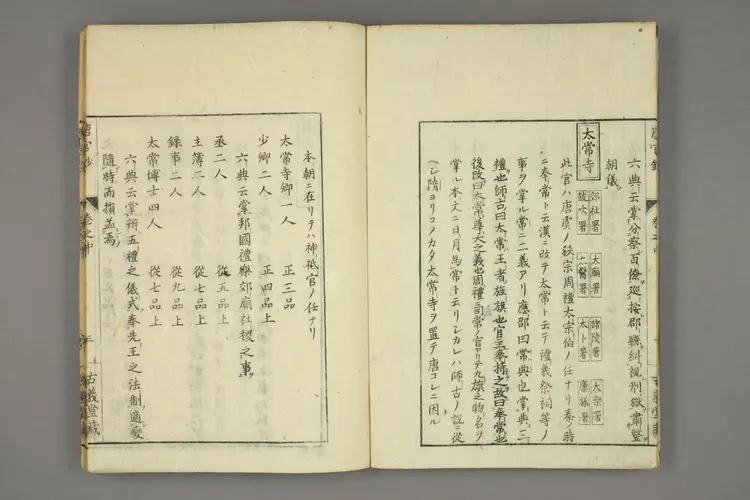 六典云掌分察百僚巡按郡縣糾視刑獄肅整
朝儀
太常寺
郊社署 太廟署 諸陵署 太樂署
鼓吹署 太醫署 太卜署 廩犧署
此官ハ唐虞ノ秩宗周禮大宗伯ノ任ナリ秦ノ時
ニ奉常ト云漢ニ改テ太常ト云テ禮義祭祠等ノ
事ヲ掌ル常ニ二義アリ應邵曰常典也掌典三
禮也師古曰太常王者旌旗也官王奉持之故曰奉常也
後改曰太常尊大之義也周禮司常ノ官アリテ九旗之物名ヲ
掌ル本文ニ日月為常ト云リシカレハ師古ノ説ニ從
ヘシ隋ヨリコノカタ太常寺ヲ置テ唐コレニ因ル
本朝ニ在リテハ神祇官ノ任ナリ
太常寺卿一人 正三品
少卿二人 正四品上
六典云掌邦國禮樂郊廟社稷之事
丞二人 從五品上
主簿二人 從七品上
錄事二人 從九品上
太常博士四人 從七品上
六典云掌辨五禮之儀式奉先王之法制適變
隨時而損益焉
唐官鈔 卷之中 古義堂藏